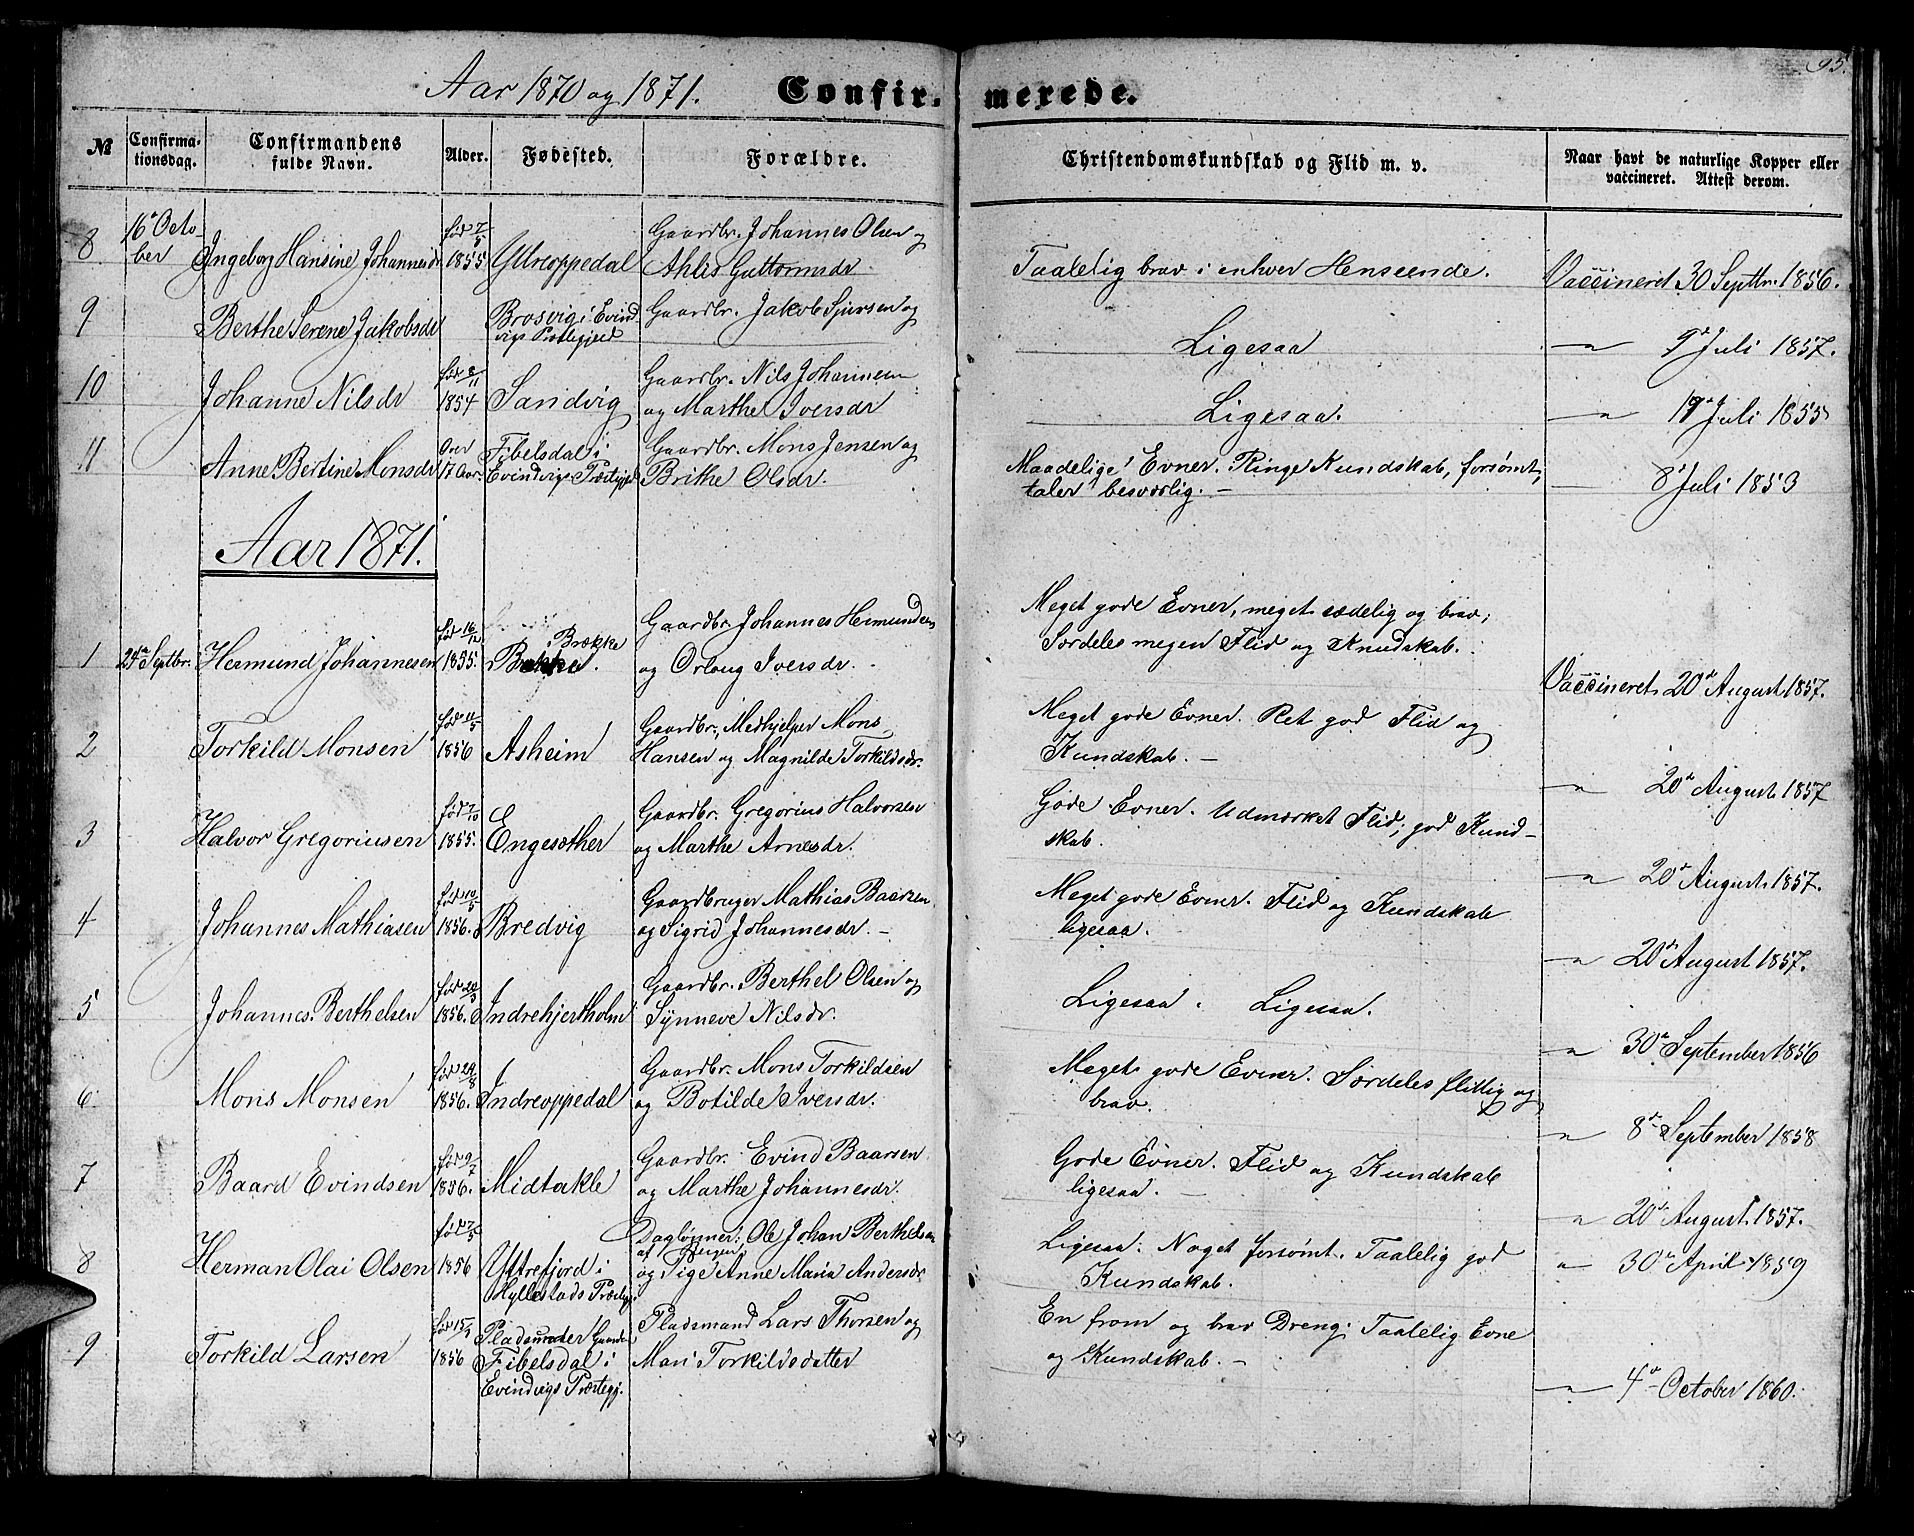 95.
Aar 1870 og 1871. Confir- merede.
№ Confirma-
tionsdag. Confirmandens
fulde Navn. Alder. Fødested. Forældre. Christendomskundskab og Flid m. v. Naar havt de naturlige Kopper eller
vaccineret. Attest derom.
8 16de Octo-
ber Ingeborg Hansine Johannesdr født 7/5
1855 Yttreoppedal Gaardbr. Johannes Olsen og
Ahlis Guttormsdr. Taalelig brav i enhver Henseende. Vaccineret 30 Septbr. 1856.
9 Berthe Serene Jakobsdr Brosvig i Evind
vigs Præstegjeld Gaardbr. Jakob Sjursen og
Ligesaa — " — 9de Juli 1857.
10 Johanne Nilsdr født 8/11
1854 Sandvig Gaardbr. Nils Johannesen
og Marthe Iversdr Ligesaa. — " — 19de Juli 1855
11 Anne Bertine Monsdr Over
17 Aar. Fibelsdal i
Evindvigs Præstegj. Gaardbr. Mons Jensen og
Brithe Olsdr. Maadelige Evner. Ringe Kundskab, forsømt,
taler besværlig. — 8de Juli 1853
Aar 1871.
1 24de Septbr. Hermund Johannesen født 16/12
1855. Brække
Gaardbr. Johannes Hermundsen
og Orloug Iversdr. Meget gode Evner, meget sædelig og brav;
Særdeles megen Flid og Knudskab. Vaccineret 20de August 1857.
2 Torkild Monsen født 11/5
1856 Asheim Gaardbr. Medhjelper Mons
Hansen og Magnilde Torkildsdr. Meget gode Evner. Ret god Flid og
Kundskab. — " — 20de August 1857
3 Halvor Gregoriussen født 7/10
1855. Engesæther Gaardbr. Gregorius Halvorsen
og Marthe Arnesdr. Gode Evner. Udmærket Flid; god Kund-
skab. — " — 20de August 1857.
4 Johannes Mathiasen født 10/5
1856. Bredvig Gaardbruger Mathias Baarsen
og Sigrid Johannesdr. — Meget gode Evner. Flid og Kundskab
ligesaa. — " — 20de August 1857.
5 Johannes Berthelsen født 29/3
1856. Indrehjertholm Gaardbr. Berthel Olsen og
Synneve Nilsdr. Ligesaa. Ligesaa. — " — 30de September 1856
6 Mons Monsen født 29/8
1856. Indreoppedal Gaardbr. Mons Torkildsen
og Botilde Iversdr. Meget gode Evner. Særdeles flittig og
brav. — " — 8de September 1858
7 Baard Evindsen født 9/7
1856. Midtakle Gaardbr. Evind Baarsen
og Marthe Johannesdr. Gode Evner. Flid og Kundskab
ligesaa. — — " — 20de August 1857.
8 Herman Olai Olsen født 7/5
1856 Yttrefjord i
Hyllestads Præstegj. Daglønner: Ole Johan Berthelsen
af
og Pige Anne Maria Andersdr Ligesaa. Noget forsømt. Taalelig god
Kundskab. — " — 30de April 1859
9 Torkild Larsen født 15/1
1856 Plads under Gaarden
Fibelsdal i
Evindvigs Præstegj. Pladsmand Lars Thorsen og
Mari Torkildsdatter En from og brav Dreng; Taalelig Evne
og Kundskab. — — " — 4de October 1860.